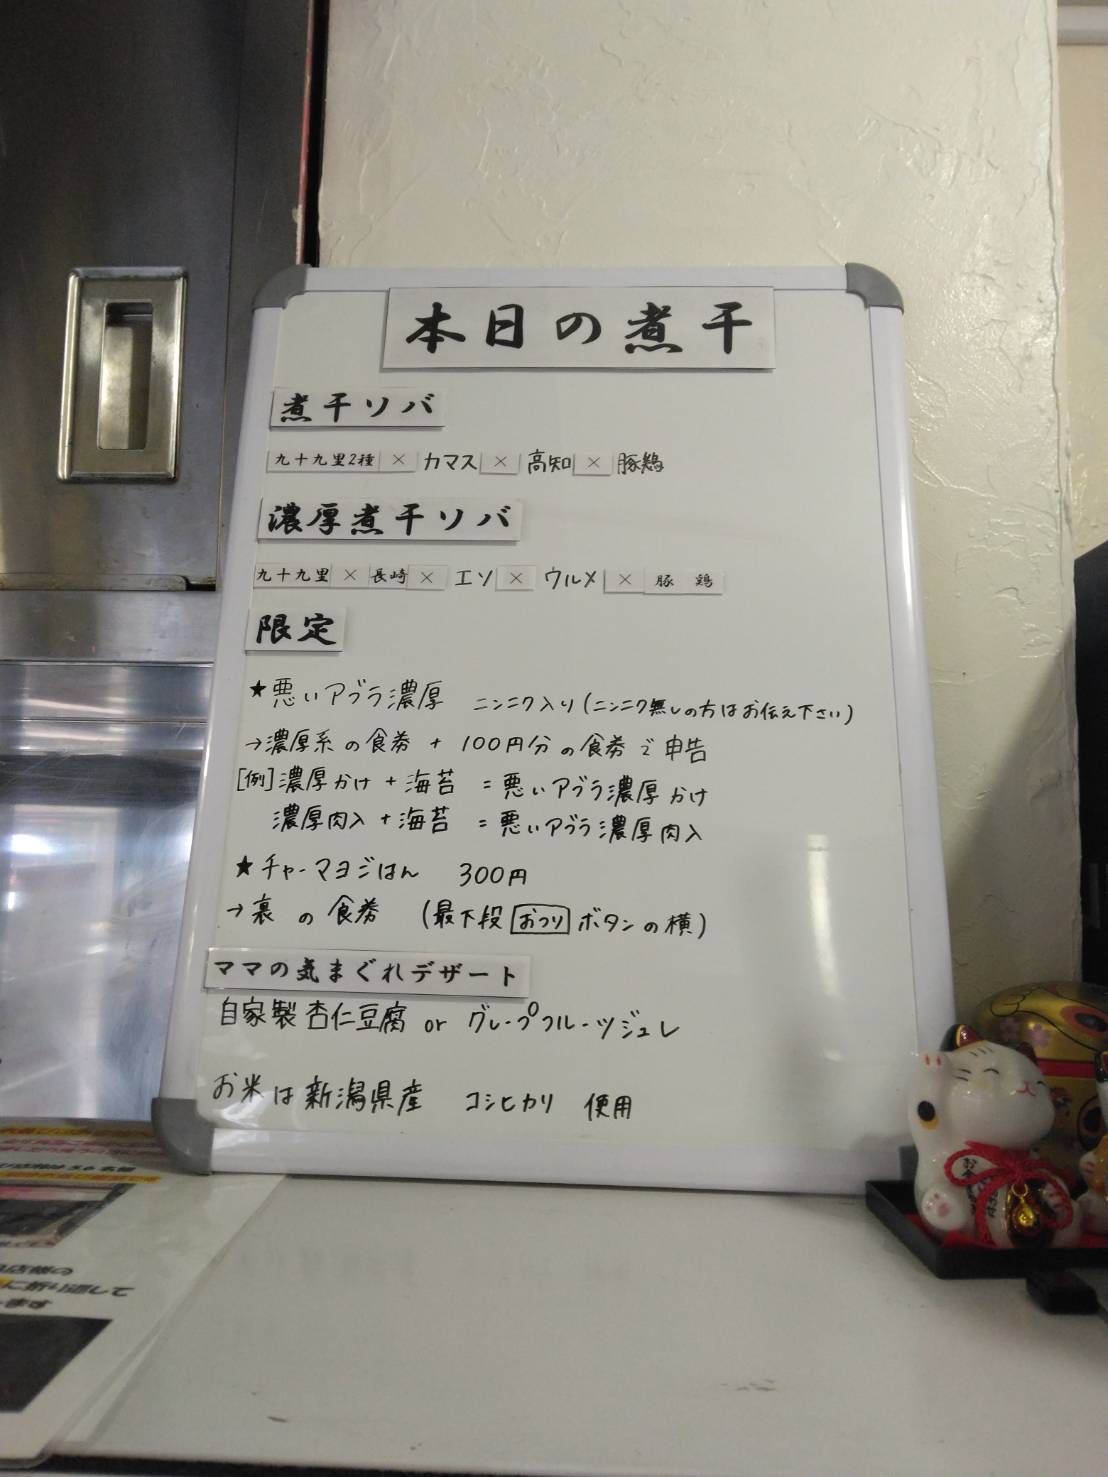 本日の煮干
煮干ソバ
九十九里2種 × カマス × 高知 × 豚鶏
濃厚煮干ソバ
九十九里 × 長崎 × エソ × ウルメ × 豚鶏
限定
★悪いアブラ濃厚 ニンニク入り(ニンニク無しの方はお伝え下さい)
→濃厚系の食券 + 100円分の食券で申告
[例]濃厚かけ + 海苔 = 悪いアブラ濃厚かけ
濃厚肉入 + 海苔 = 悪いアブラ濃厚肉入
★チャーマヨジはん 300円
→裏の食券 (最下段 おつり ボタンの横)
ママの気まぐれデザート
自家製杏仁豆腐 or グレープフルーツジュレ
お米は新潟県産 コシヒカリ 使用